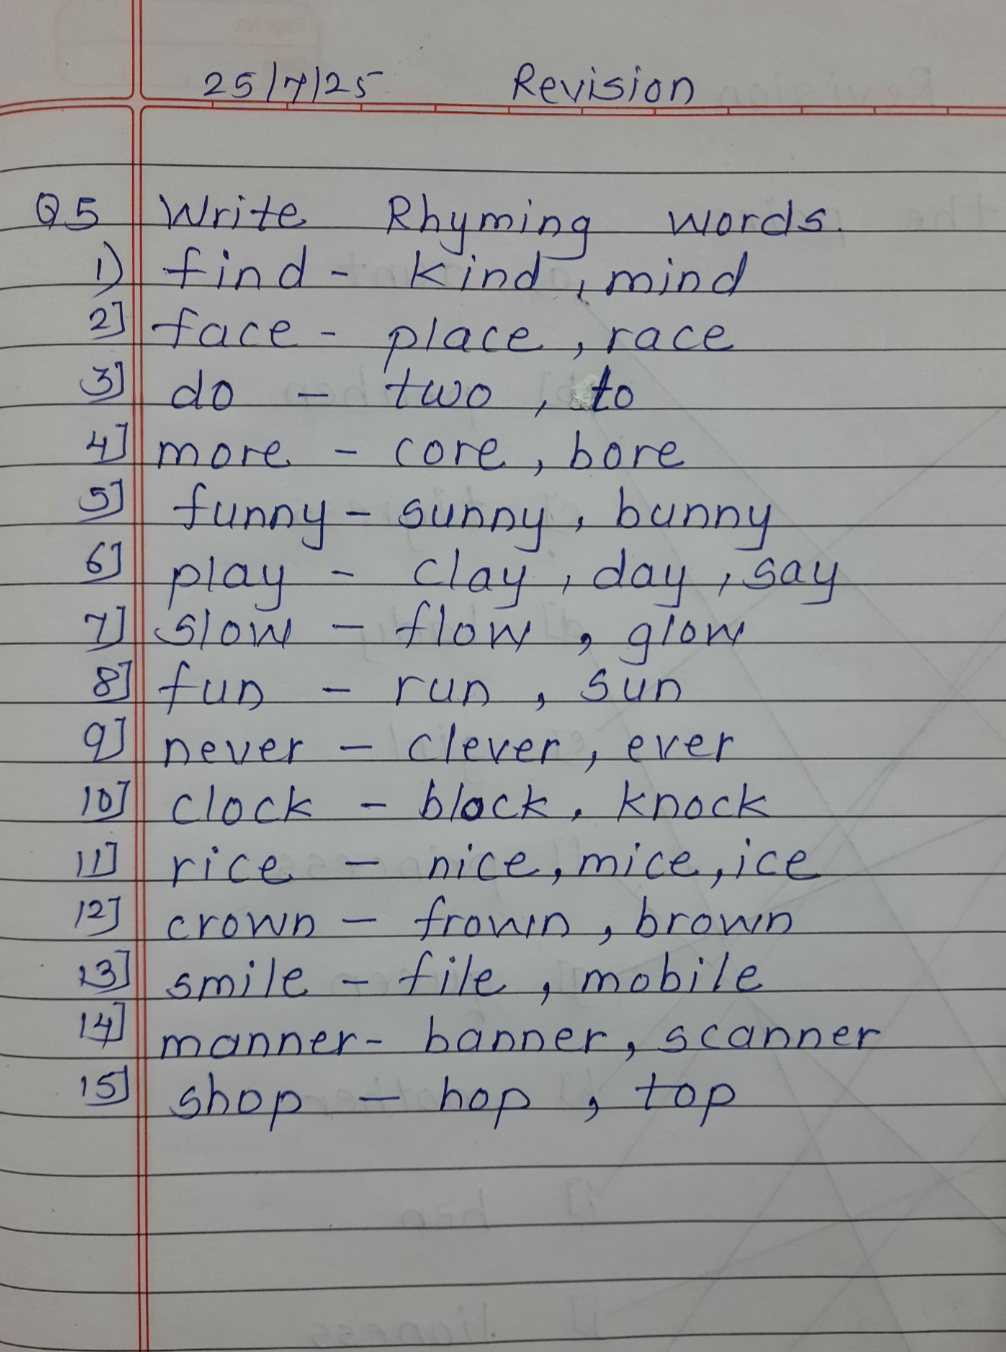 25/7/25 Revision
Q5 Write Rhyming words.
1) find - kind, mind
2] face - place, race
3] do - two, to
4] more - core, bore
5] funny - sunny, bunny
6] play - clay, day, say
7] slow - flow, glow
8] fun - run, sun
9] never - clever, ever
10] clock - block, knock
11] rice - nice, mice, ice
12] crown - frown, brown
13] smile - file, mobile
14] manner - banner, scanner
15] shop - hop, top